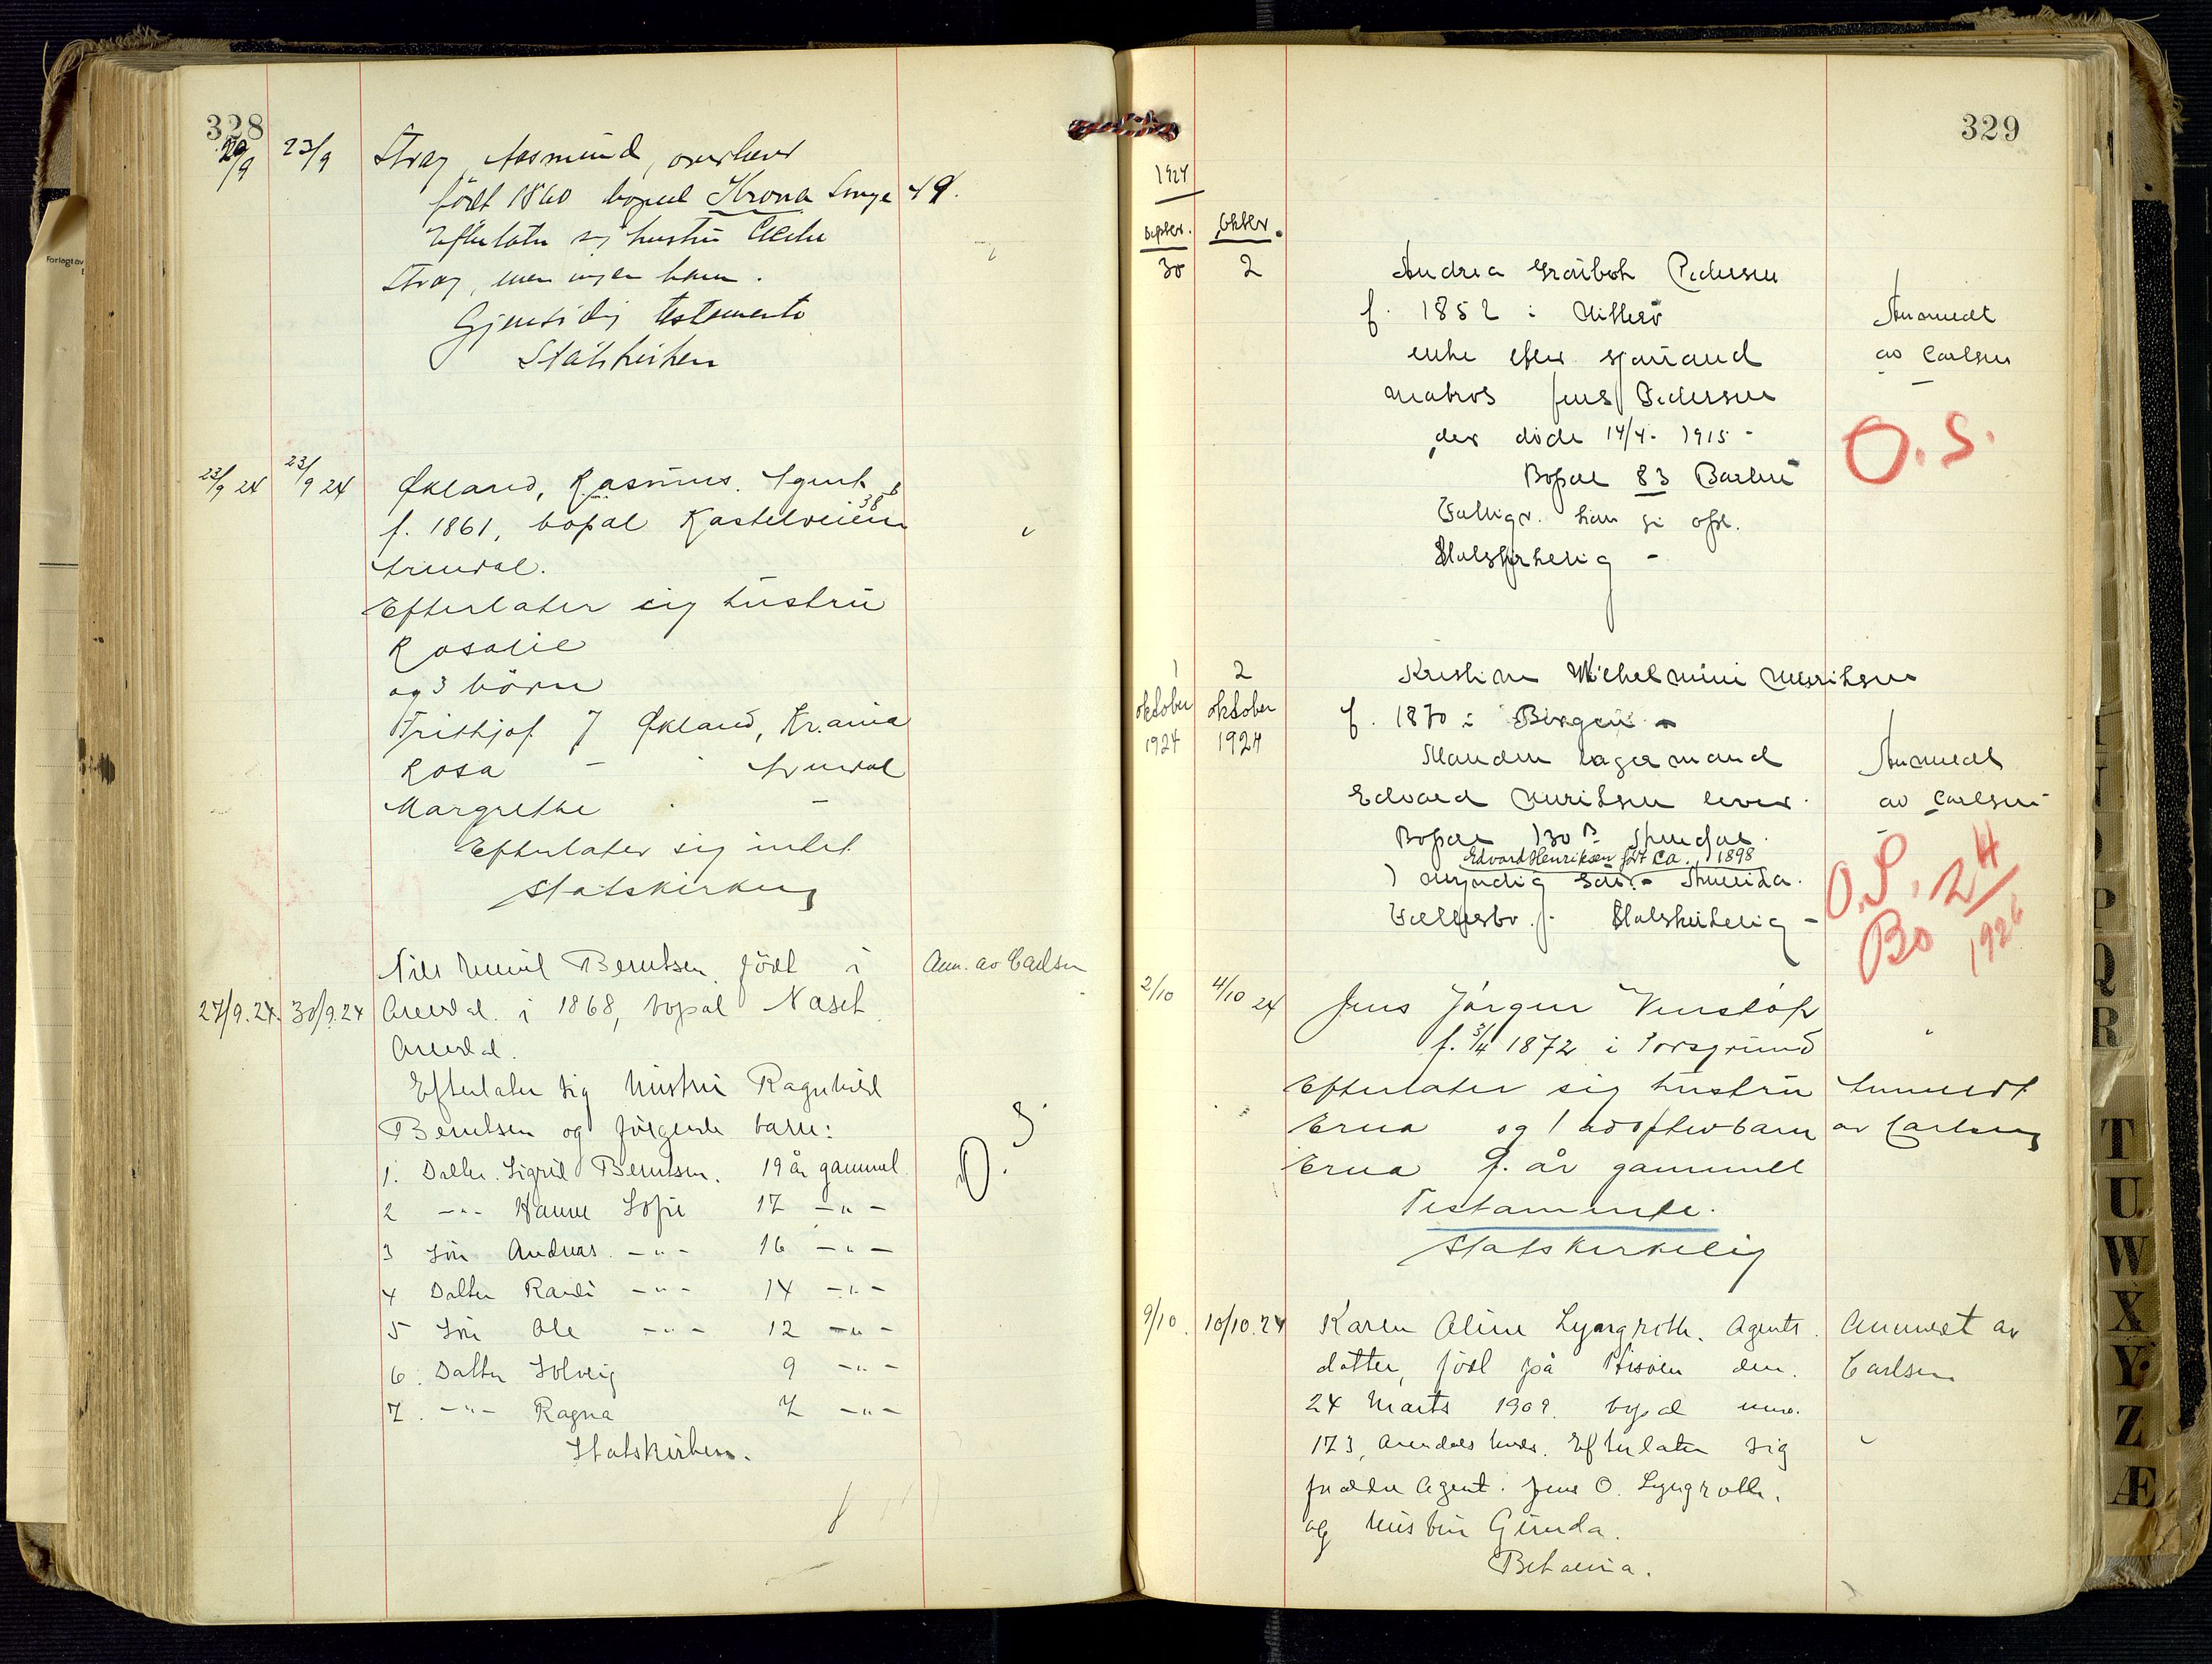 328
20/9 23/9 Stray, Aasmund, overlærer
født 1860 bopæl Krona Tunge 49.
Efterlater sig hustru
Stray, men ingen barn.
Gjensidig testamente
Statskirken
23/9 24 23/9 24 Økland, Rasmus. Agent
f. 1861, bopæl Kastelveien 38 b
Arendal.
Efterlater sig hustru
Rosalie
og 3 börn
Frithjof J Økland, Kr.ania
Rosa - " Arendal
Margrethe " -
Efterlater sig intet
Statskirken
Nils Emil Berntsen, födt i
Ann. av Carlsen
27/9.24. 30/9.24 Arendal. i 1868, bopæl Næset
Arendal.
Efterlater sig hustru Ragnhild
Berntsen og følgende barn:
O. S.
1. Datter. Sigrid Berntsen. 19 år gammel.
2 -"- Hanne Sofie 17 -"-
3 Sön Andreas -"- 16 -"-
4 Datter Randi -"- 14 -"-
5 Sön Ole -"- 12 -"-
6. Datter Solveig 9 -"-
7. -"- Ragna 7 -"-
Statskirken.
Forlagt av
329
1924
septbr. oktbr.
30 2 Andrea Pedersen
f. 1852 i Hitterö
enke efter sjømand
matros Jens Pedersen
der døde 14/4 - 1915 -
Bopæl 83 Barbu
Fattigv. han gi opl.
Statskirkelig -
Anmeldt
av Carlsen
O. S.
1 oktober 1924 2 oktober 1924
Kristine Wilhelmine Henriksen
f. 1870 i Bergen -
Manden lagermand
Edvard Henriksen lever.
Bopæl 130 B
Edvard Henriksen født ca. 1898
1 myndig sön - Amerika.
Statskirkelig -
Anmeldt
av Carlsen
O.S. 24
Bo 1926
2/10 4/10 24 Jens Jörgen Vensköp
f. 3/4 1872 i Porsgrund
Efterlater sig hustru
Erna og 1 adoptivbarn
Erna 9. år gammel
Testamente.
Statskirkelig
Anmeldt
av Carlsen
9/10. 10/10.24 Karen Aline Lyngroth. Agents
datter, född på Hisöien den
24 Marts 1909. bopæl
173, Arendals Efterlater sig
forældre Agent. Jens O. Lyngroth.
og hustru Gunda.
Betania.
Anmeldt av
Carlsen
P
Q
R
T
U
W
X
Y
Z
Æ